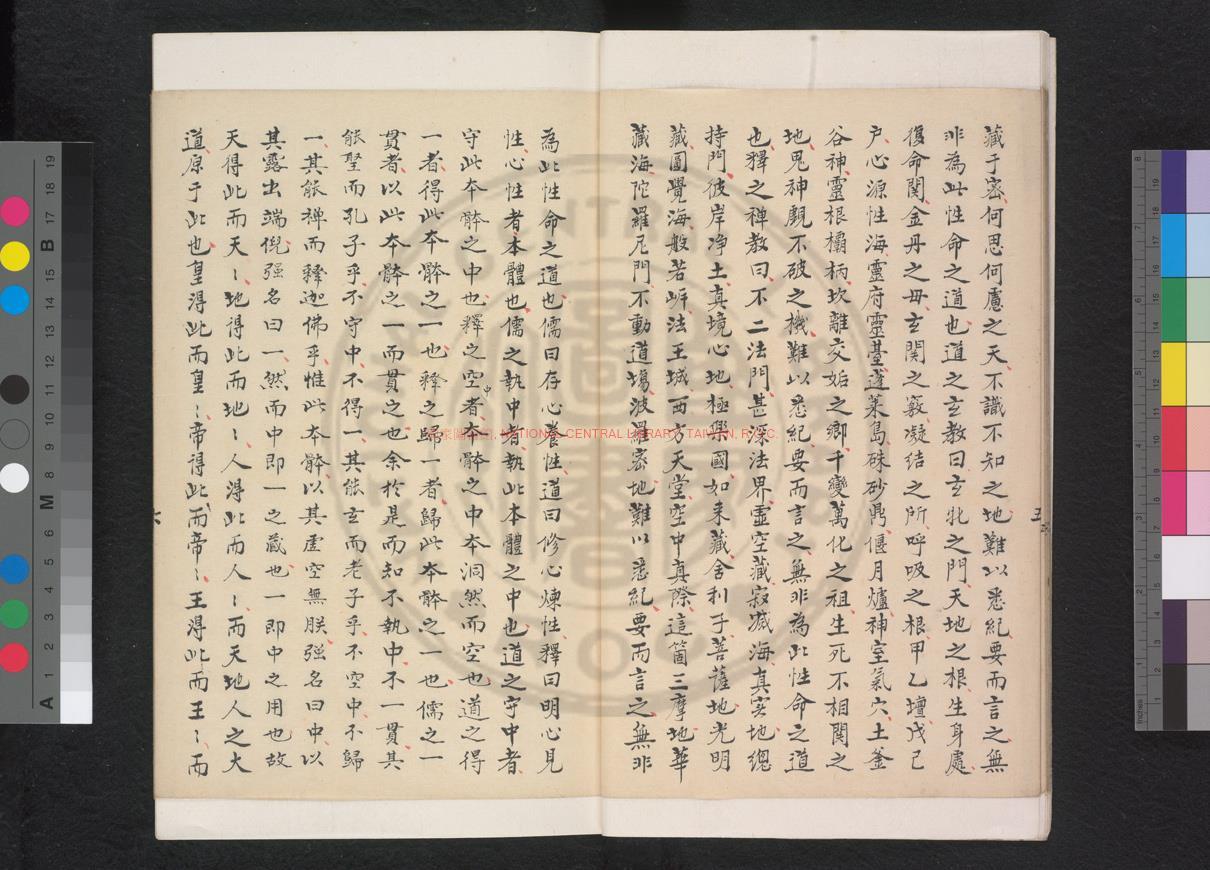 藏于密何思何慮之天不識不知之地難以悉紀要而言之無
非為此性命之道也道之玄教曰玄牝之門天地之根生身處
復命關金丹之母玄關之竅凝結之所呼吸之根甲乙壇戊己
户心源性海靈府靈臺蓬萊島硃砂鼎偃月爐神室氣穴土釜
谷神靈根欛柄坎離交姤之鄉千變萬化之祖生死不相關之
地鬼神覷不破之機難以悉紀要而言之無非為此性命之道
也釋之禅教曰不二法門甚深法界虛空藏寂滅海真实地總
持門彼岸净土真境心地極樂國如来藏舍利子菩薩地光明
藏圓覺海般若岸法王城西方天堂空中真際這箇三摩地華
藏海陀羅尼門不動道塲波羅密地難以悉紀要而言之無非
為此性命之道也儒曰存心養性道曰修心煉性釋曰明心見
性心性者本體也儒之執中者執此本體之中也道之守中者
守此本體之中也釋之空中者本體之中本洞然而空也道之得
一者得此本體之一也釋之歸一者歸此本體之一也儒之一
貫者以此本體之一而貫之也余於是而知不執中不一貫其
能聖而孔子乎不守中不得一其能玄而老子乎不空中不歸
一其能禅而釋迦佛乎惟此本體以其虛空無朕强名曰中以
其露出端倪强名曰一然而中即一之藏也一即中之用也故
天得此而天〻地得此而地〻人得此而人〻而天地人之大
道原于此也皇得此而皇〻帝得此而帝〻王得此而王〻而
五
六
NATIONAL CENTRAL LIBRARY, TAIWAN, R.O.C.